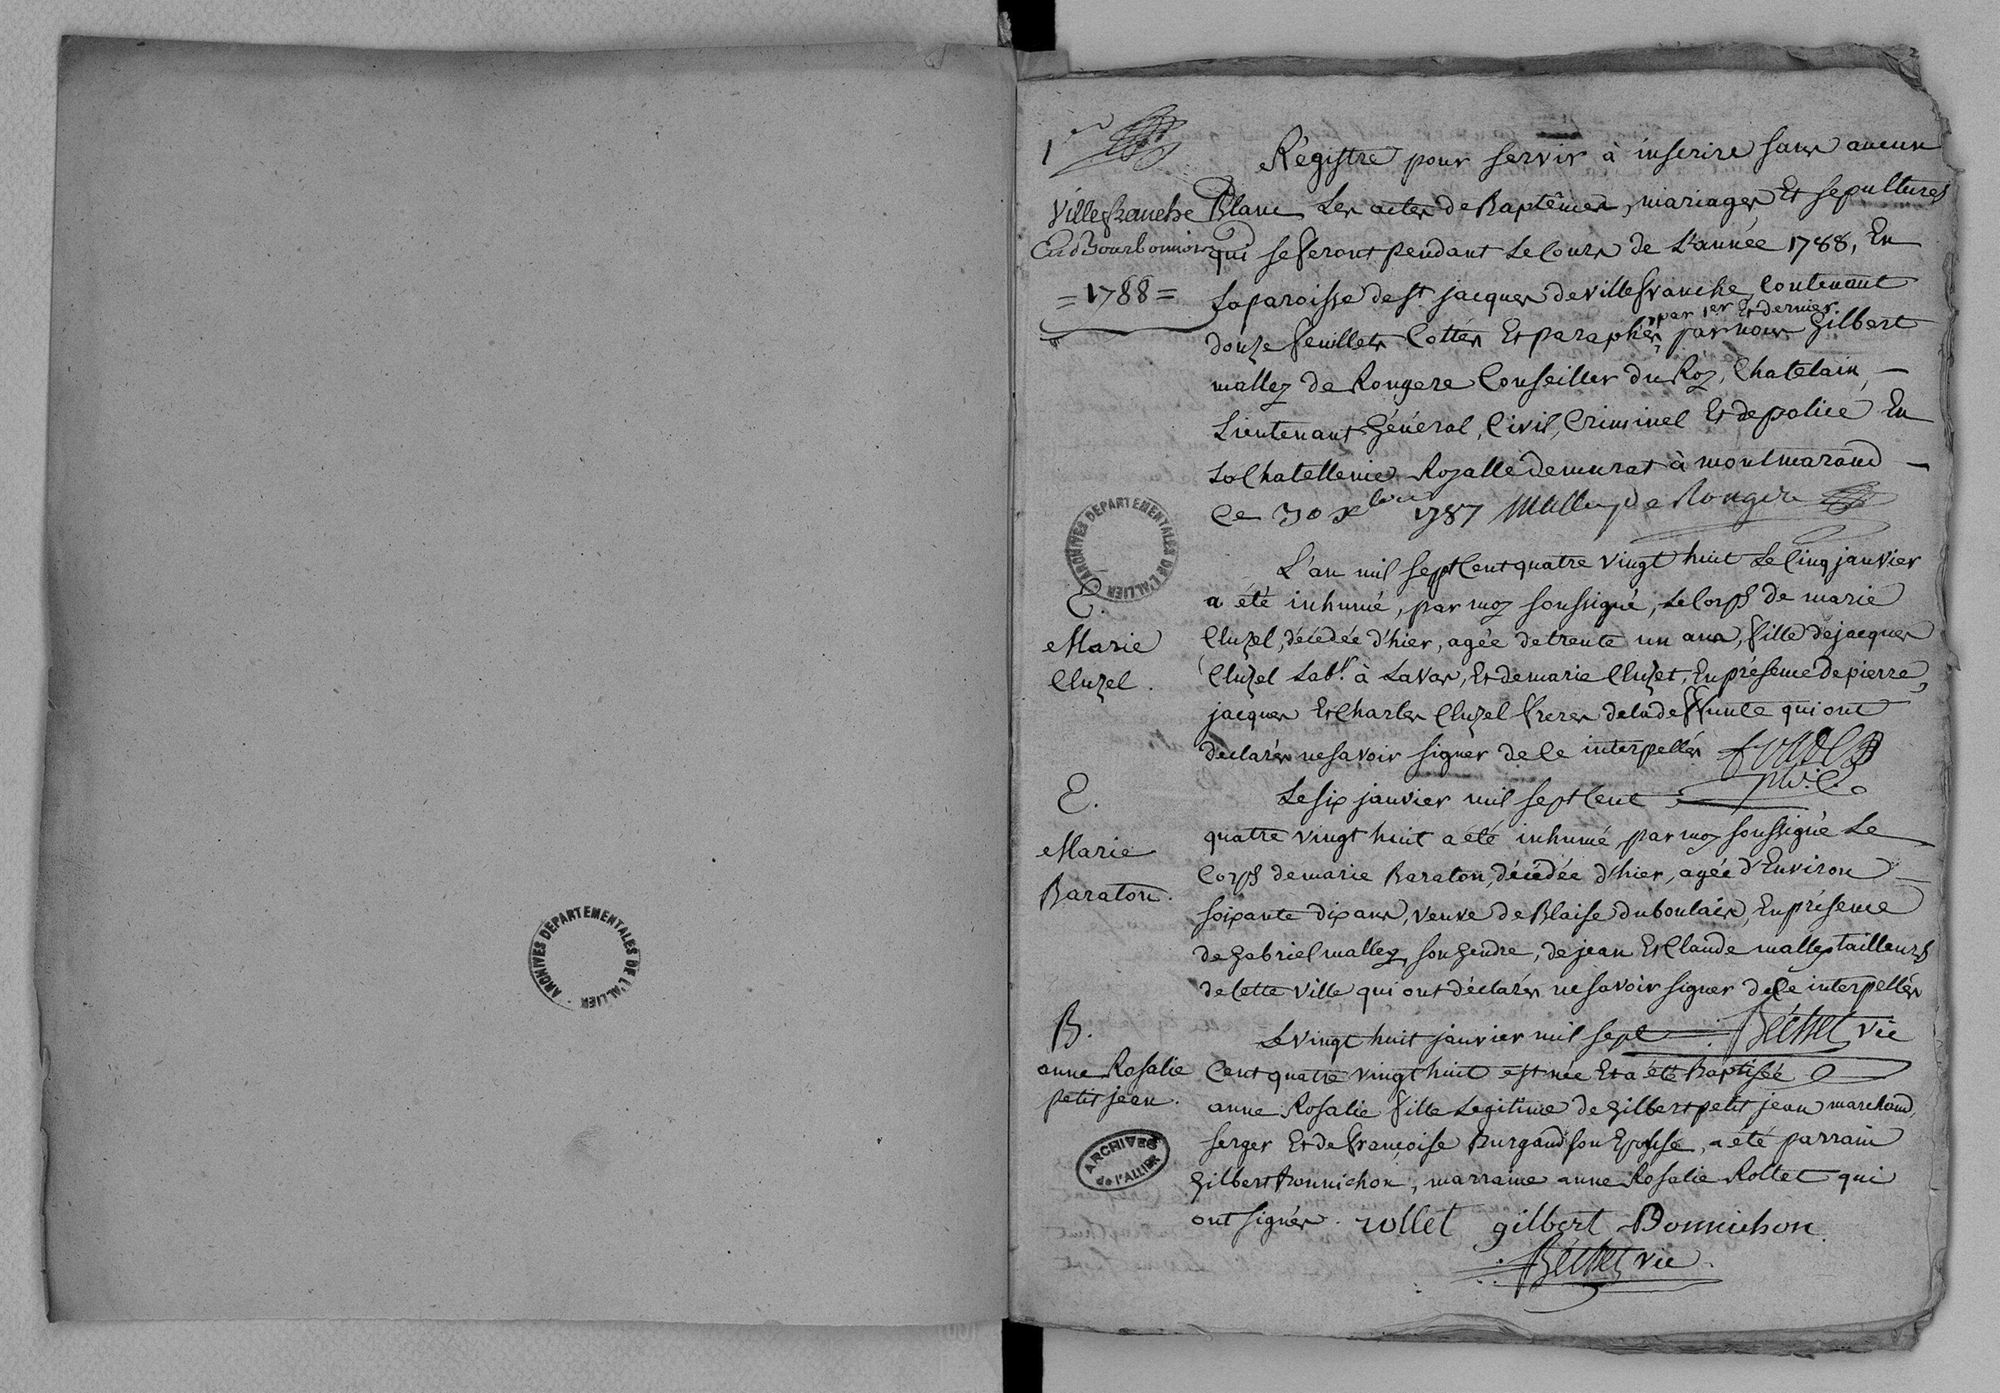 1er
Régistre pour servir à inscrire sans aucun
Villefranche
En Bourbonnois
=1788=
Blanc Les actes de Baptêmes, mariages Et sepultures
qui se feront pendant Le Cours de L'année 1788, En
La paroisse de st jacques de villefranche, Contenant
par 1er Et dernier
douze feuillets Cottés Et paraphés, par nous Gilbert
mallez de Rougere Conseiller du Roy, Chatelain, —
Lieutenant Général, Civil, Criminel Et de police En
La Chatellenie Royalle de murat à montmaraud —
Ce 30 xbre 1787 Malley de Rougere
ARCHIVES DEPARTEMENTALES DE L'ALLIER
E.
Marie
Cluzel.
L'an mil sept Cent quatre vingt huit Le Cinq janvier
a été inhumé, par moy soussigné, Le Corps de marie
Cluzel, décédée d'hier, agée de trente un ans, fille de jacques
Cluzel Labr. à Lavas, Et de marie Cluzet, En présence de pierre,
jacques Et Charles Cluzel freres de la deffunte qui ont
declarés ne savoir signer de Ce interpellés
E.
Marie
Baraton.
Le six janvier mil sept Cent
quatre vingt huit a été inhumé par moy soussigné Le
Corps de marie Baraton, décédée d'hier, agée d'Environ
soixante dix ans, veuve de Blaise duboulais, En présence
de Gabriel malley, son Gendre, de jean Et Claude malley tailleurs
de Cette ville qui ont déclarés ne savoir signer de Ce interpellés
Béchet vic
B.
anne Rosalie
petit jean.
Le vingt huit janvier mil sept
Cent quatre vingt huit est née Et a été Baptisée
anne Rosalie fille Legitime de Gilbert petit jean marchand
serger Et de françoise Burgaud son Epouse, a été parrain
Gilbert Bonnichon, marraine anne Rosalie Rollet qui
ont signés. rollet gilbert Bonnichon
Béchet vic
ARCHIVES
Dep. de l'ALLIER
ARCHIVES DEPARTEMENTALES DE L'ALLIER